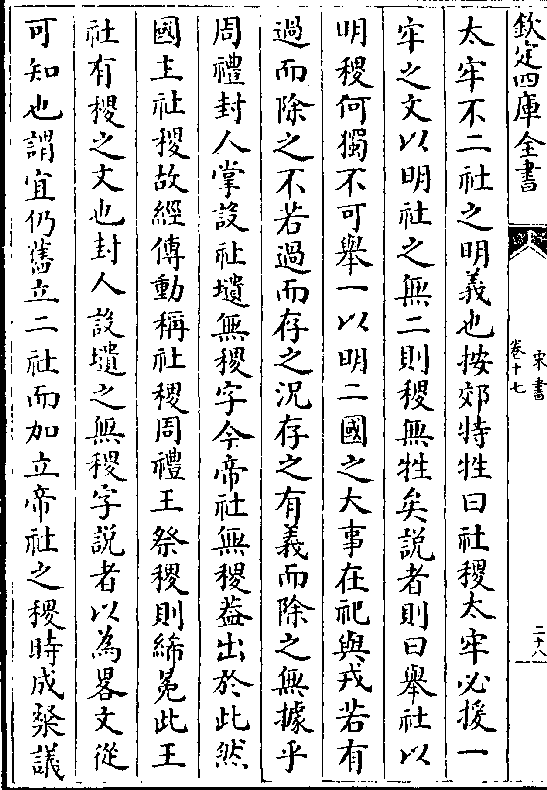 欽定四庫全書
宋書
卷十七
二十八
太牢不二社之明義也按郊特牲曰社稷太牢必援一
牢之文以明社之無二則稷無牲矣説者則曰舉社以
明稷何獨不可舉一以明二國之大事在祀與戎若有
過而除之不若過而存之況存之有義而除之無據乎
周禮封人掌設社壝無稷字今帝社無稷葢出於此然
國主社稷故經傳動稱社稷周禮王祭稷則絺冕此王
社有稷之文也封人設壝之無稷字説者以為畧文從
可知也謂宜仍舊立二社而加立帝社之稷時成粲議